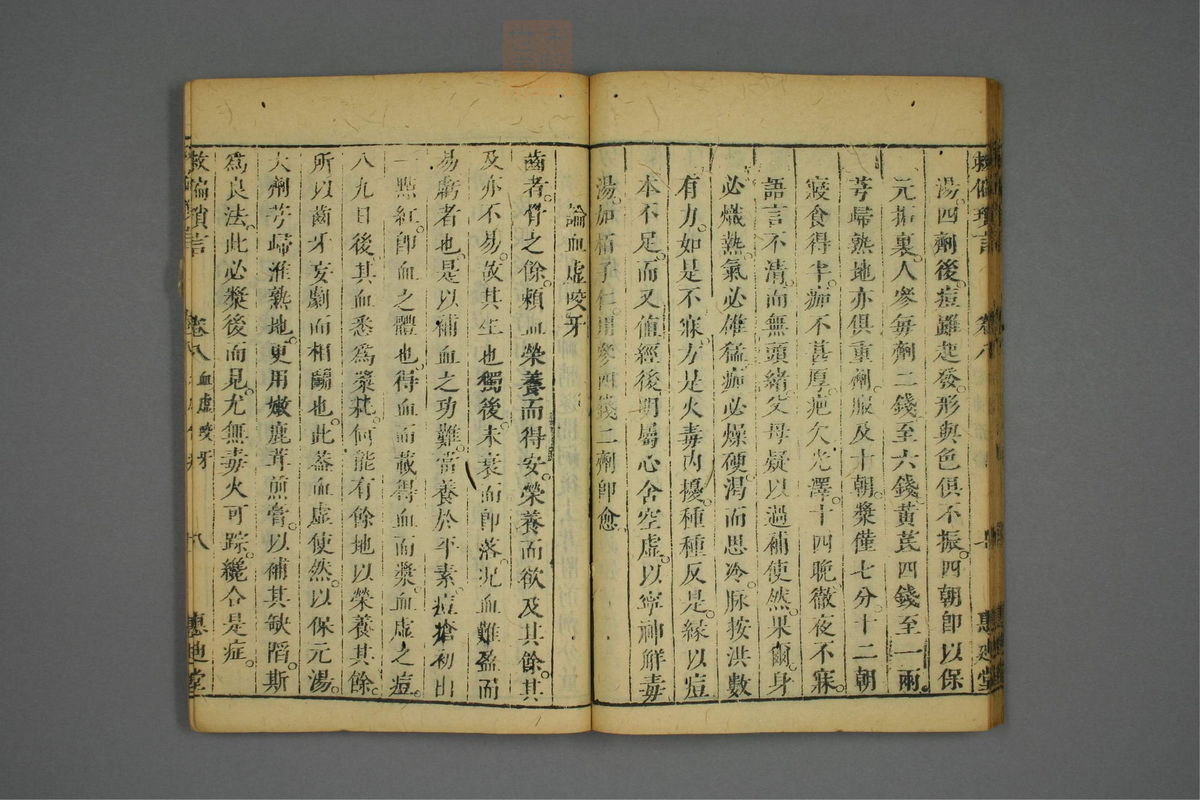 救偏瑣言 卷八 七 惠迪堂
湯。四劑後。痘雖起發。形與色俱不振。四朝卽以保
元托裏。人參每劑二錢至六錢。黃芪四錢至一兩。
芎歸熟地亦俱重劑。服及十朝。漿僅七分。十二朝
寢食得半。痂不甚厚。疤欠光澤。十四晚徹夜不寐。
語言不清。而無頭緒。父母疑以過補使然。果爾。身
必熾熱。氣必雄猛。痂必燥硬。渴而思冷。脉按洪數
有力。如是不寐。方是火毒內擾。種種反是。緣以痘
本不足。而又値經後。明屬心舍空虛。以寧神解毒
湯。加棗仁。用參四錢。二劑卽愈。
論血虛咬牙
齒者。骨之餘。賴血榮養而得安。榮養而欲及其餘。其
及亦不易。故其生也獨後。未衰而卽落。况血難盈而
易虧者也。是以補血之功難。當養於平素。痘搶初出
一點紅。卽血之體也。得血而載。得血而漿。血虛之痘。
八九日後。其血悉爲漿耗。何能有餘地以榮養其餘。
所以齒牙妄劇而相鬬也。此蓋血虛使然。以保元湯。
大劑芎歸淮熟地。更用嫩鹿茸煎膏。以補其缺陷。斯
爲良法。此必漿後而見。尤無毒火可踪。纔合是症。
救偏瑣言 卷八 血虛咬牙 八 惠迪堂